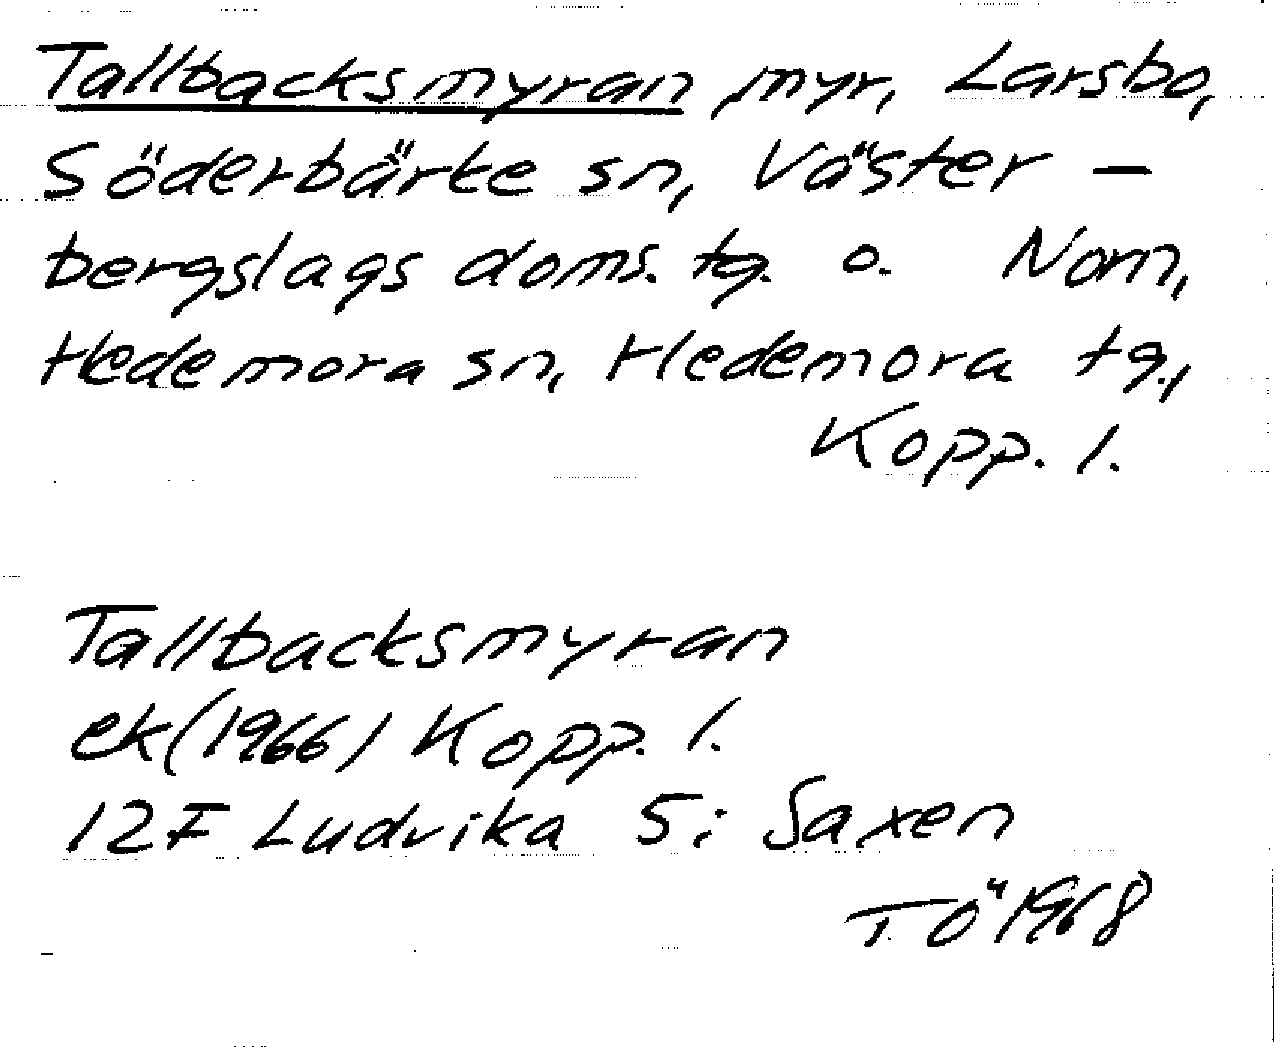 Tallbacksmyran myr, Larsbo,
Söderbärke sn, Väster-
bergslags doms. tg. o. Norn,
Hedemora sn, Hedemora tg.,
Kopp. l.
Tallbacksmyran
ek(1966) Kopp. l.
12F Ludvika 5i Saxen
TÖ 1968